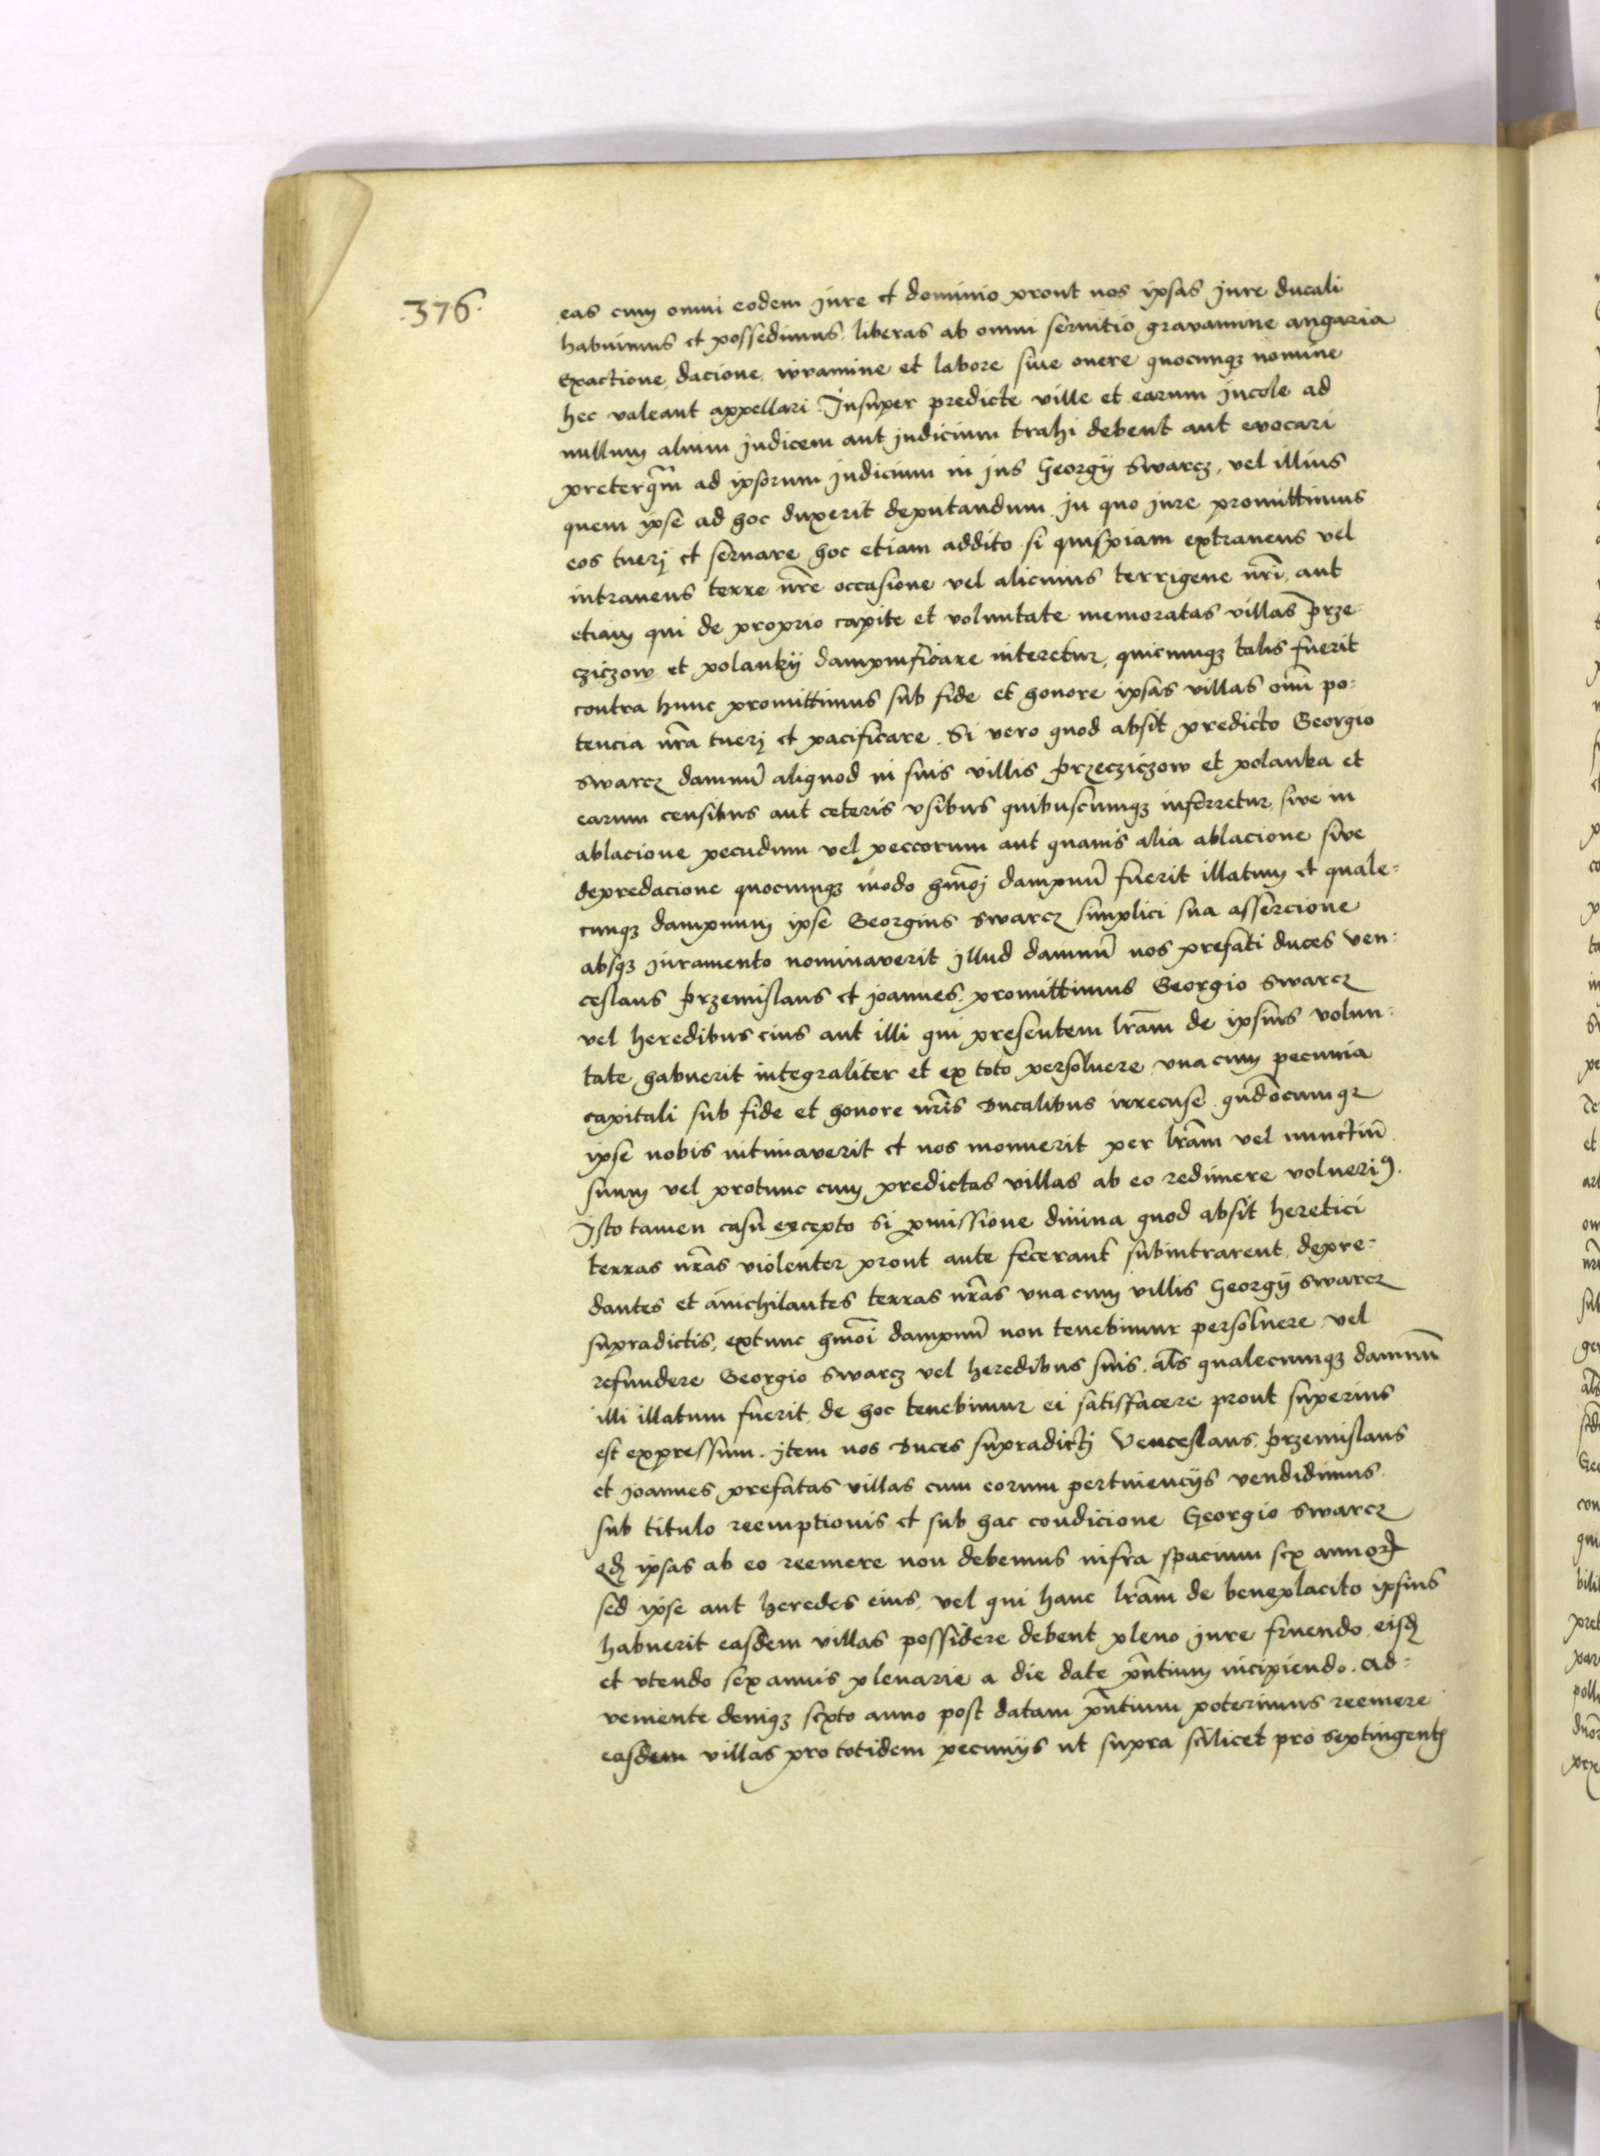 .376.
eas cum omni eodem jure et dominio prout nos ipsas jure ducali
habuimus et possedimus, liberas ab omni seruitio gravamine angaria
exactione, dacione, iuramine et labore siue onere quocunqz nomine
hec valeant appellari. Insuper predicte ville et earum jncole ad
nullum alium judicem aut judicium trahi debent aut evocari
preterqm̄ ad ipsorum judicium in jus Georgij Swarcz, vel illius
quem ipse ad hoc duxerit deputandum, in quo jure promittimus
eos tuerj et seruare, hoc etiam addito si quispiam extraneus vel
intraneus terre nr̄e occasione vel alicuius terrigene nr̄i, aut
etiam qui de proprio capite et voluntate memoratas villas Prze-
cziczow et polankij dampnificare niteretur, quicunqz talis fuerit
contra hunc promittimus sub fide et honore ipsas villas omī po-
tencia nr̄a tuerj et pacificare. Si vero quod absit predicto Georgio
Swarcz damnū aliquod in suis villis Przecziczow et polanka et
earum censibus aut ceteris vsibus quibuscumqz inferretur, sive in
ablacione pecudum vel peccorum aut quauis alia ablacione sive
depredacione quocunqz modo hmōj dampnū fuerit illatum et quale-
cunqz dampnum ipse Georgius Swarcz simplici sua assercione
absqz juramento nominaverit jllud damnū nos prefati duces Ven-
ceslaus Przemislaus et joannes, promittimus Georgio Swarcz
vel heredibus eius aut illi qui presentem lr̄am de ipsius volun-
tate habuerit integraliter et ex toto persoluere vna cum pecunia
capitali sub fide et honore nr̄is ducalibus irrecuse, qn̄documqz
ipse nobis intimaverit et nos monuerit per lr̄am vel nunctiū
suum vel protunc cum predictas villas ab eo redimere volueri9.
Isto tamen casu excepto si pmissione diuina quod absit heretici
terras nr̄as violenter prout ante fecerant subintrarent, depre-
dantes et anichilantes terras nr̄as vna cum villis Georgij Swarcz
supradictis, extunc hmōi dampnū non tenebimur persoluere vel
refundere Georgio Swarcz vel heredibus suis. al̄s qualecumqz damnū
illi illatum fuerit, de hoc tenebimur ei satisfacere prout superius
est expressum. jtem nos duces supradictj Venceslaus, Przemislaus
et joannes prefatas villas cum eorum pertinencijs vendidimus
sub titulo reemptionis et sub hac condicione Georgio Swarcz
qđ ipsas ab eo reemere non debemus infra spacium sex annoꝝ
sed ipse aut heredes eius, vel qui hanc lr̄am de beneplacito ipsius
habuerit easdem villas possidere debent pleno jure fruendo eisđ
et vtendo sex annis plenarie a die date pn̄tium incipiendo. Ad-
veniente deniqz sexto anno post datam pn̄tium poterimus reemere
easdem villas pro totidem pecunijs ut supra scilicet pro septingentꝭ